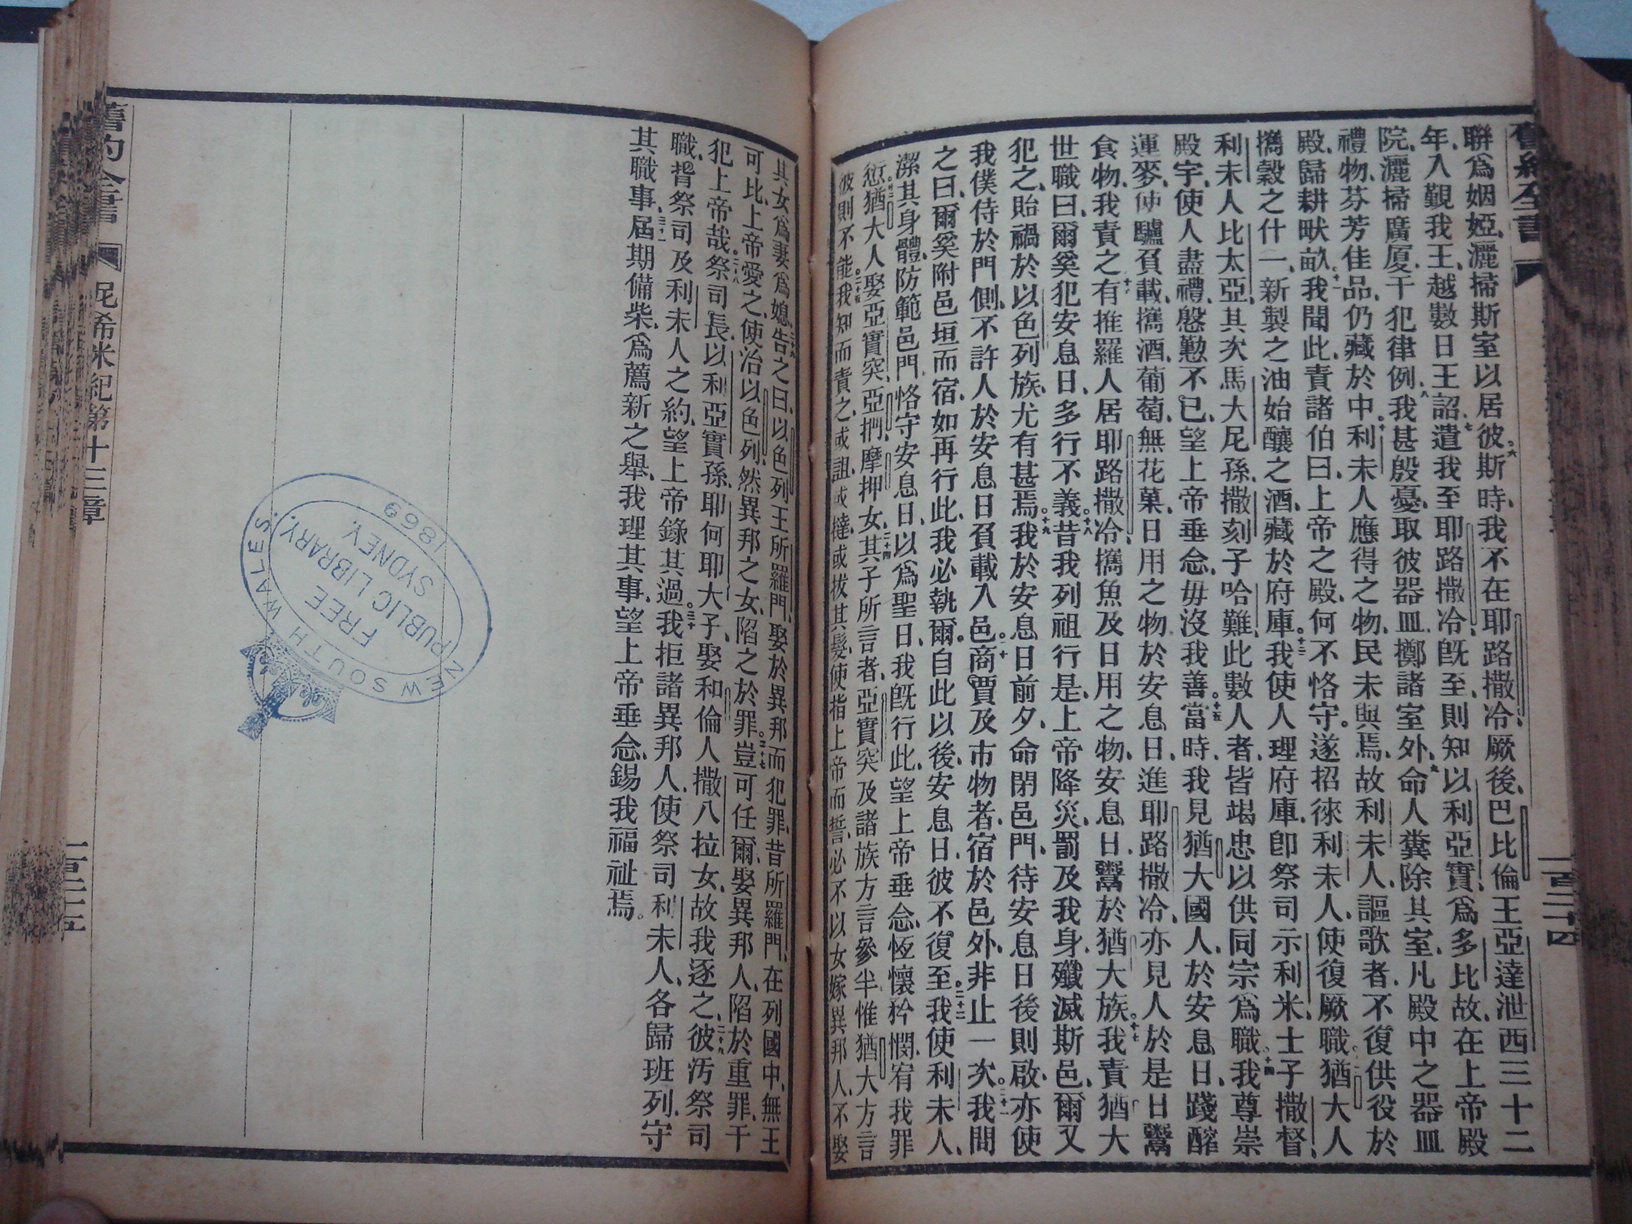 舊約全書
一百二十四
聯爲姻婭、灑掃斯室以居、彼斯時、我不在耶路撒冷、厥後、巴比倫王亞達泄西三十二
年、入覲我王、越數日、王詔遣我至耶路撒冷、旣至、則知以利亞實爲多比故、在上帝殿
院、灑掃廣厦、干犯律例、我甚殷憂、取彼器皿、擲諸室外、命人糞除其室、凡殿中之器皿
禮物、芬芳佳品、仍藏於中、利未人應得之物、民未與焉、故利未人、謳歌者、不復供役於
殿、歸耕畎畝、我聞此、責諸伯曰、上帝之殿、何不恪守。遂招徠利未人、使復厥職、猶大人
攜穀之什一、新製之油、始釀之酒、藏於府庫、我使人理府庫、卽祭司示利米、士子撒督、
利未人比太亞、其次馬大尼孫、撒刻子哈難、此數人者、皆竭忠以供同宗爲職、我尊崇
殿宇、使人盡禮、慇懃不已、望上帝垂念、毋沒我善、當時、我見猶大國人、於安息日、踐醡
運麥、使驢負載、攜酒、葡萄、無花菓、日用之物、於安息日、進耶路撒冷、亦見人於是日鬻
食物、我責之、有推羅人居耶路撒冷、攜魚及日用之物、安息日、鬻於猶大族、我責猶大
世職曰、爾奚犯安息日、多行不義、昔我列祖行是、上帝降災、罰及我身、殲滅斯邑、爾又
犯之、貽禍於以色列族、尤有甚焉、我於安息日前夕、命閉邑門、待安息日後則啟、亦使
我僕侍於門側、不許人於安息日負載入邑、商賈及市物者、宿於邑外、非止一次、我問
之曰、爾奚附邑垣而宿、如再行此、我必執爾、自此以後、安息日、彼不復至、我使利未人、
潔其身體、防範邑門、恪守安息日、以爲聖日、我旣行此、望上帝垂念、恆懷矜憫、宥我罪
愆、猶大人娶亞實突亞捫摩押女、其子所言者、亞實突及諸族方言參半、惟猶大方言
彼則不能、我知而責之、或詛或撻、或拔其髮、使指上帝而誓、必不以女嫁異邦人、不娶
其女爲妻爲媳、告之曰、以色列王所羅門、娶於異邦而犯罪、昔所羅門、在列國中、無王
可比、上帝愛之、使治以色列、然異邦之女、陷之於罪、豈可任爾娶異邦人、陷於重罪、干
犯上帝哉、祭司長以利亞實孫、耶何耶大子、娶和倫人撒八拉女、故我逐之、彼汚祭司
職、背祭司及利未人之約、望上帝錄其過、我拒諸異邦人、使祭司利未人、各歸班列、守
其職事、屆期備柴、爲薦新之舉、我理其事、望上帝垂念、錫我福祉焉。
舊約全書
尼希米紀第十三章
一百二十五
NEW SOUTH WALES.
FREE
PUBLIC LIBRARY,
SYDNEY,
1869